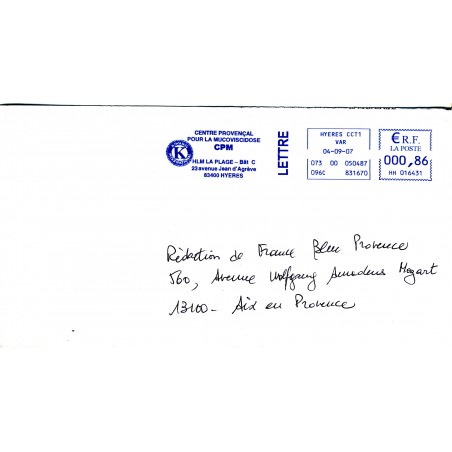 CENTRE PROVENÇAL
POUR LA MUCOVISCIDOSE
CPM
K
HLM LA PLAGE - Bât C
23 avenue Jean d'Agrève
83400 HYERES
LETTRE
HYERES CCT1
VAR
04-09-07
073 00 050487
096C 831670
€ R.F.
LA POSTE
000,86
HH 016431
Rédaction de France Bleu Provence
560, Avenue Wolfgang Amadeus Mozart
13100 - Aix en Provence